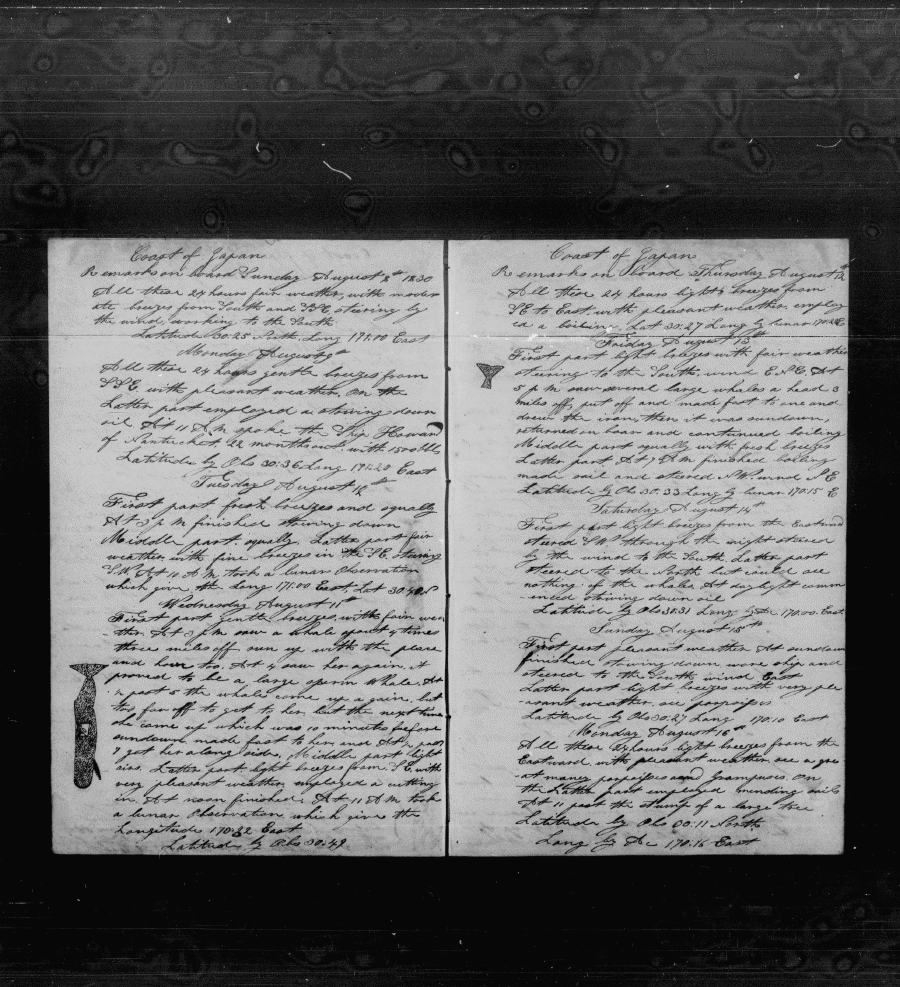 Coast of Japan
Remarks on board Sunday August 8th 1830
All these 24 hours fair weather, with moder
ate breezes from South and SSE steering by
the wind, working to the South
Latitude 30.25 North, Long 171.00 East
Monday August 9th
All these 24 hours gentle breezes from
SSE with pleasant weather, on the
Latter part employed a stowing down
oil At 11 A M spoke the Ship Howard
of Nantucket 22 months out with 1500 bbls
Latitude by Obs 30:36 Long 171:20 East
Tuesday August 10th
First part fresh breezes and squally
At 3 p M finished stowing down
Middle part squally Latter part fair
weather with fine breezes in the SE, steering
SW At 10 A M took a lunar Observation
which give the Long 171:00 East, Lat 30:40 N
Wednesday August 11th
First part gentle breezes, with fair wea-
ther. At 3 p M saw a whale spout 4 times
three miles off run up with the place
and hove too. At 4 saw her again, it
proved to be a large sperm Whale. At
½ past 5 the whale come up again, but
too far off to get to her, but the next time
she came up which was 10 minutes before
sundown made fast to her, and At past
7 got her along side, Middle part light
airs. Latter part light breezes from SE, with
very pleasant weather employed a cutting
in. At noon finished. At 11 A M took
a lunar Observation which give the
Longitude 170:32 East
Latitude by Obs 30:49
Coast of Japan
Remarks on board Thursday August 12th
All these 24 hours light breezes from
SE to East, with pleasant weather employ
ed a boiling. Lat 30:27 Long by lunar E
Friday August 13th
First part light breezes with fair weather
steering to the South, wind E.SE. At
5 p M saw several large whales a head 3
miles off, put off and made fast to one and
drew the iron, then it was sundown,
returned on boar and continued boiling
Middle part squally with fresh breezes
Latter part At 7 A M finished boiling
made sail and steered NW. wind SE
Latitude by Obs 30:33 Long by lunar 170:15 E
Saturday August 14th
First part light breezes from the Eastward
steered SW through the night steered
by the wind to the South Latter part
steered to the North but could see
nothing of the whales At daylight comm
enced stowing down oil
Latitude by Obs 30:31 Long by Ac 170:00 East
Sunday August 15th
First part pleasant weather At sundown
finished stowing down, wore ship and
steered to the South, wind East
Latter part light breezes with very ple
-asant weather. see porpoises
Latitude by Obs 30:27 Long 170.10 East
Monday August 16th
All these 24 hours light breezes from the
Eastward, with pleasant weather see a gre
-at many porpoises and Grampuses. On
the Latter part employed mending sails
At 11 past the stump of a large tree
Latitude by Obs 30:11 North
Long by Ac 170:16 East